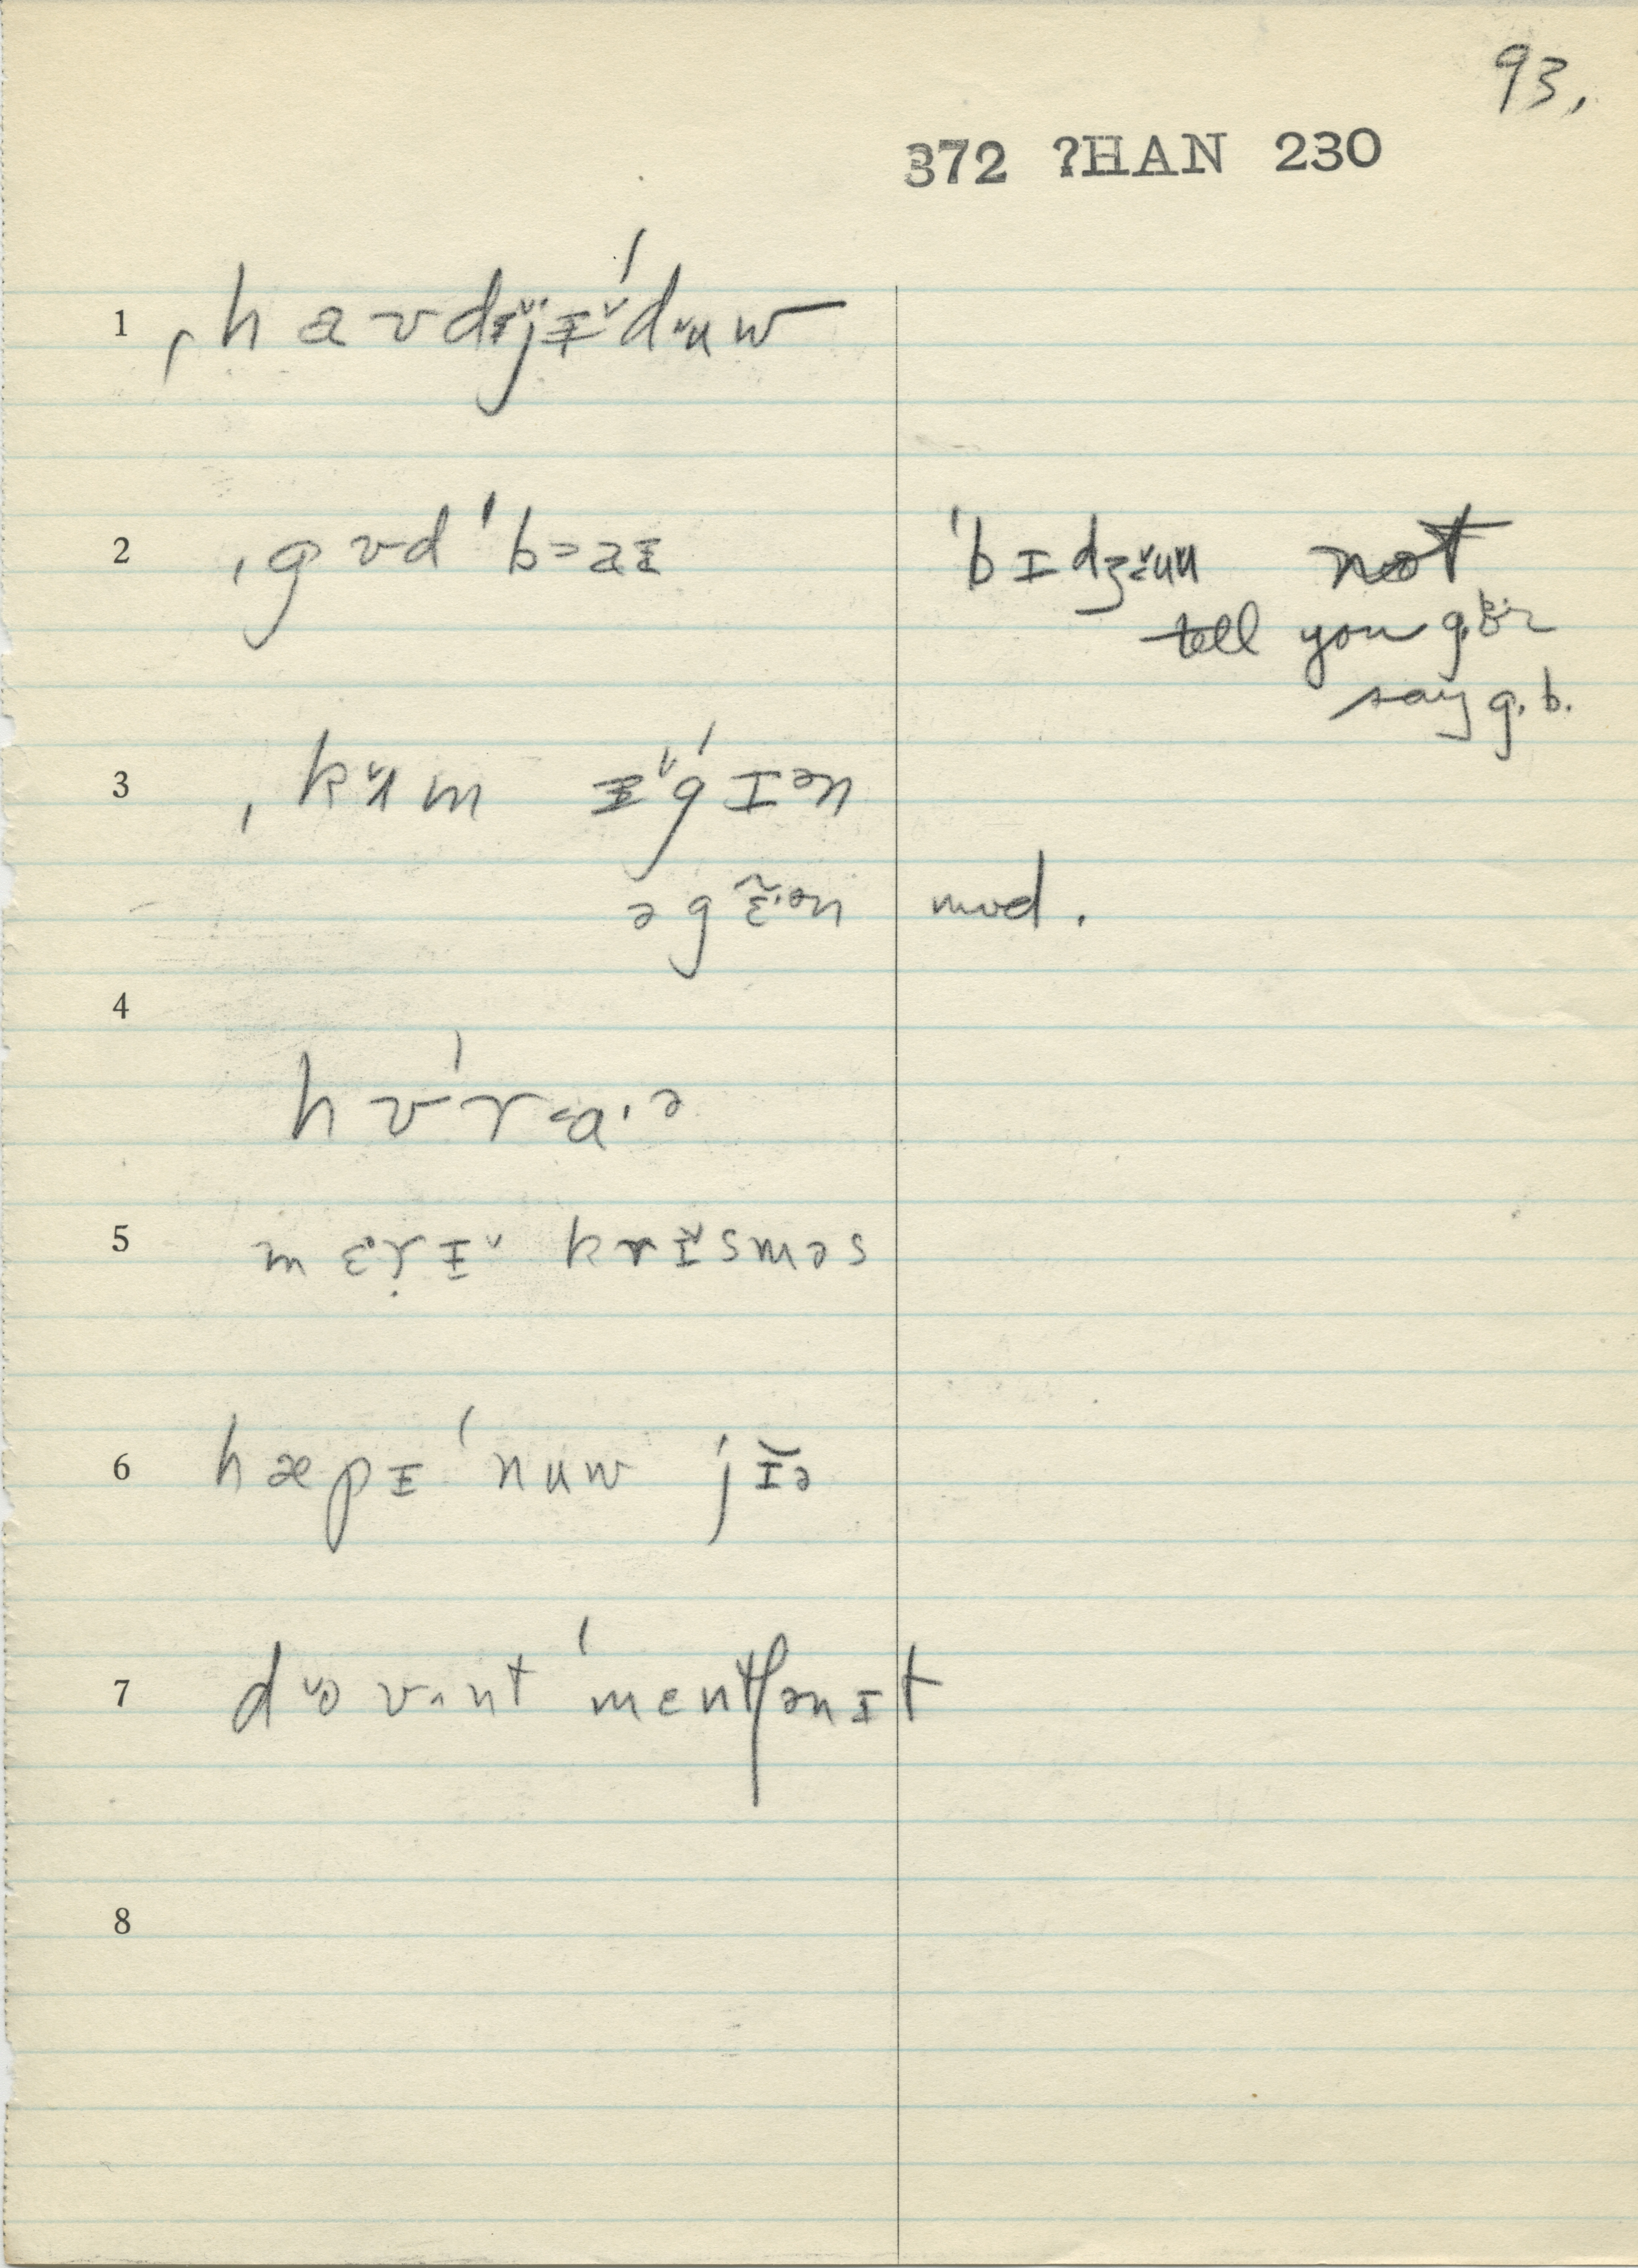 93.
372 ?HAN 230
1 ˌhavdɪ˅jɨ˅ˈdʉuw
2 ˌgʊdˈb>aɨ ˈbɪdʒʉu not
tell you
say g. b.
3 ˌkʌ˅m ɨ˅ˈgɪən
əgɛ̃·ən mod.
4
hʊˈr<a·ə
5 mɛrɨ˅ krɨsməs
6 hæpɨ ˈnuw jɪ̆ə
7 do˅ʊnt ˈmentʃənɪt
8